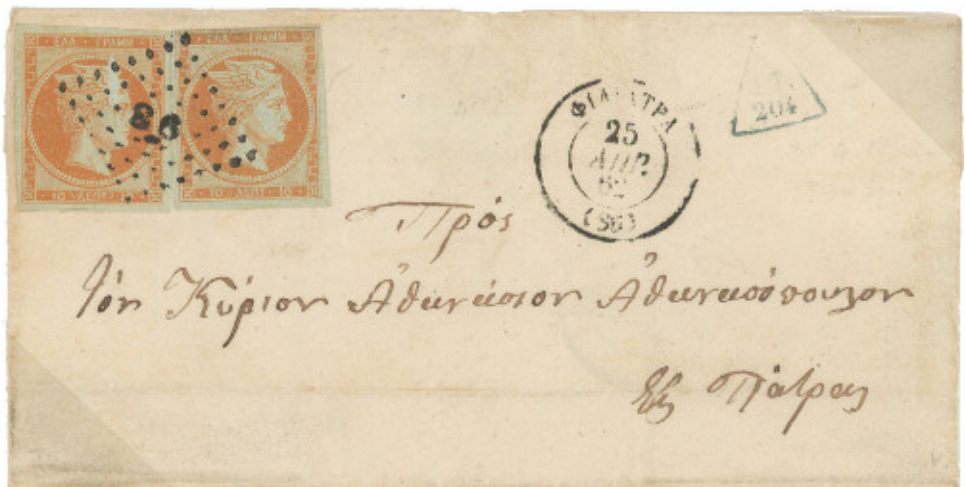 ΕΛΛ ΓΡΑΜΜ
10 ΛΕΠΤ 10
ΕΛΛ ΓΡΑΜΜ
10 ΛΕΠΤ 10
ΦΙΛΙΑΤΡΑ
25
ΑΠΡ.
62
204
Πρός
Τόν Κύριον Ἀθανάσιον Ἀθανασόπουλον
Εἰς Πάτρας